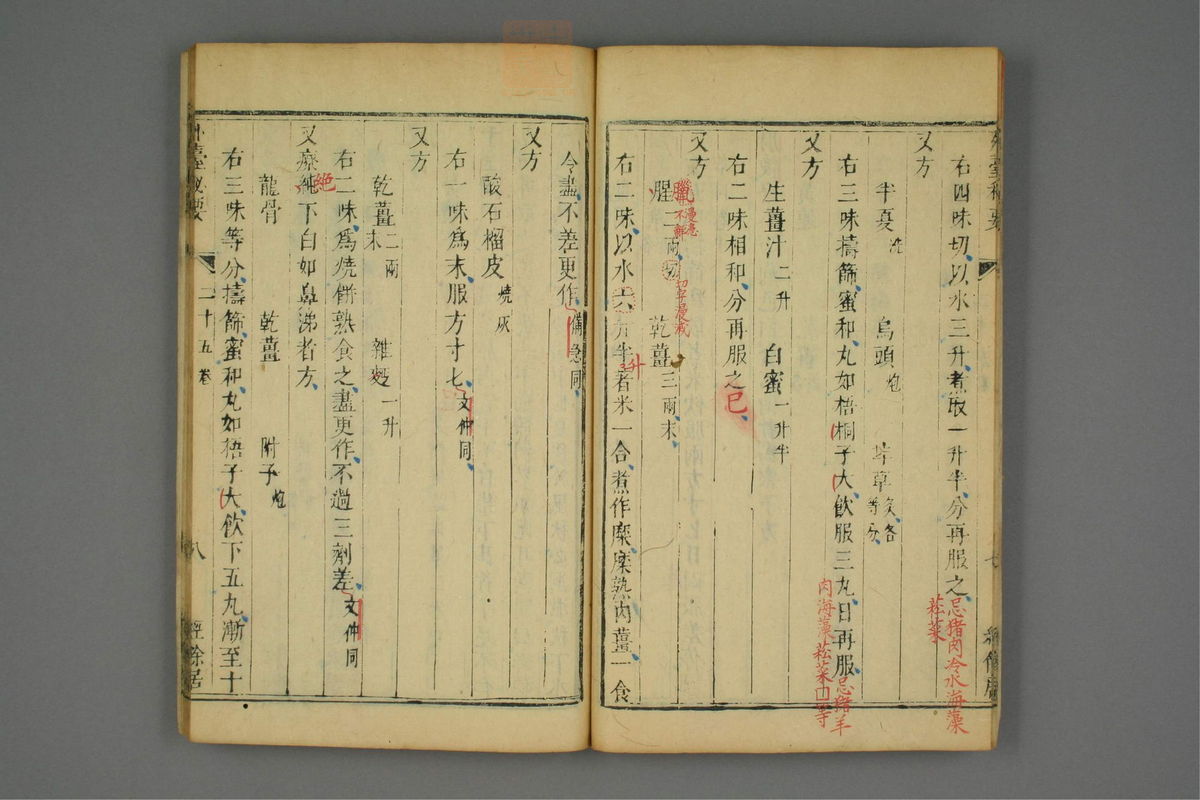 右四味切以水三升煮取一升半分再服之忌猪肉冷水海藻
菘菜
又方
半夏洗 烏頭炮 甘草炙各
等分
右三味擣篩蜜和丸如梧桐子大飲服三丸日再服忌豬羊
肉海藻菘菜
又方
生薑汁二升 白蜜一升半
右二味相和分再服之
又方
腥二兩切 乾薑三兩末
臘
不鮮
切字
右二味以水六升半著米一合煮作糜糜熟內薑一食
升
令盡不差更作備急同
又方
酸石榴皮燒灰
右一味爲末服方寸匕文仲同
又方
乾薑二兩末 雜麪一升
右二味爲燒餅熟食之盡更作不過三劑差文仲同
又療純下白如鼻涕者方
絶
龍骨 乾薑 附子炮
右三味等分擣篩蜜和丸如梧子大飲下五丸漸至十
二十五卷 八 經餘居